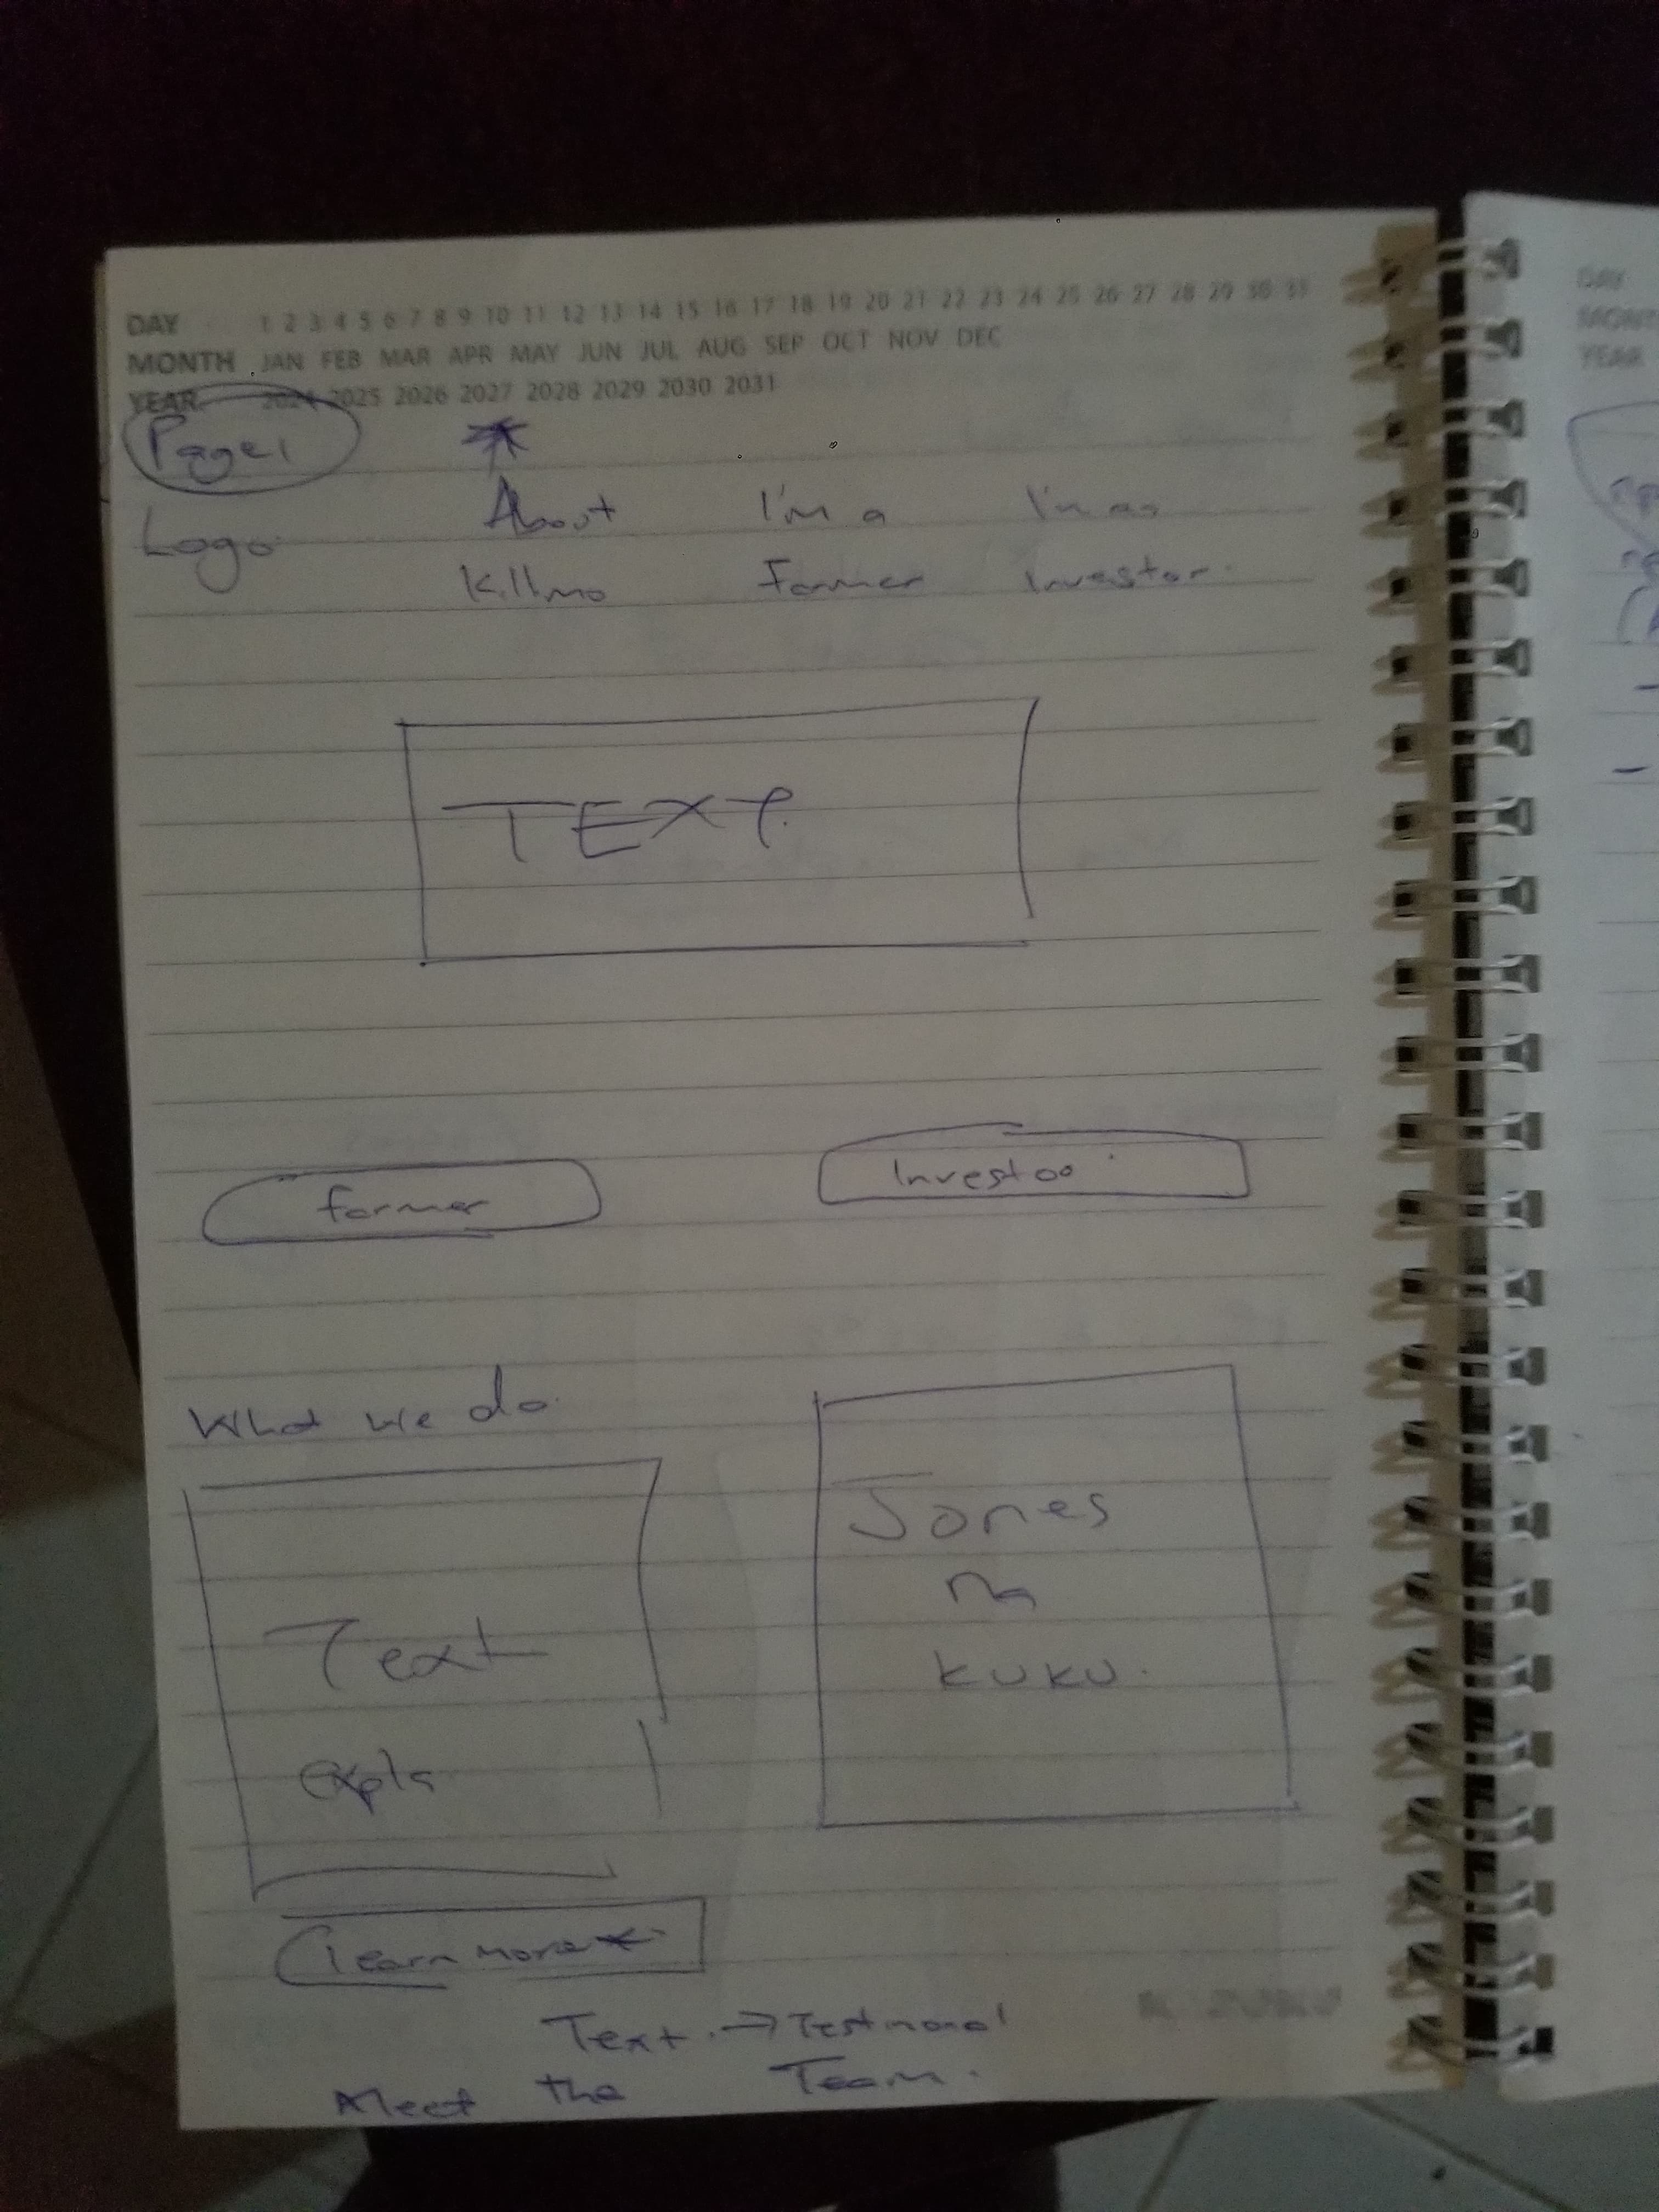 DAY 1 2 3 4 5 6 7 8 9 10 11 12 13 14 15 16 17 18 19 20 21 22 23 24 25 26 27 28 29 30 31
MONTH JAN FEB MAR APR MAY JUN JUL AUG SEP OCT NOV DEC
YEAR 2024 2025 2026 2027 2028 2029 2030 2031
Page 1
Logo
About I'm a I'm an
Killmo Farmer Investor.
TEXT.
farmer
Investor
What we do
Text
expla
Jones
na
kuku.
learn more
Text. → Testimonal
Meet the Team.
DAY
MONTH
YEAR